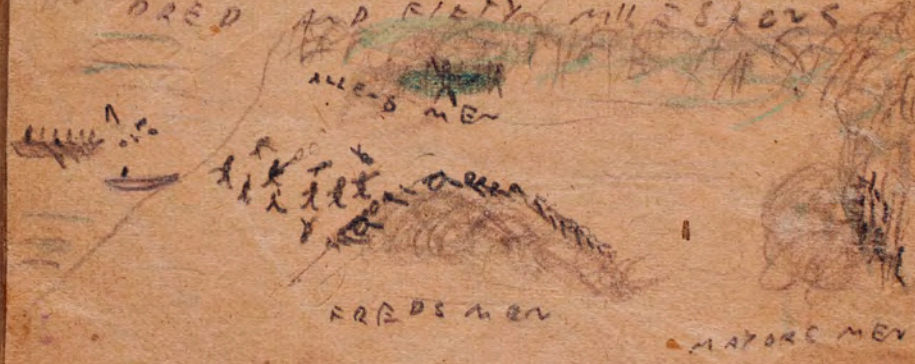 DRED AND FIFTY MILES LONG
ALLENS MEN
FREDS MEN
MAYORS MEN